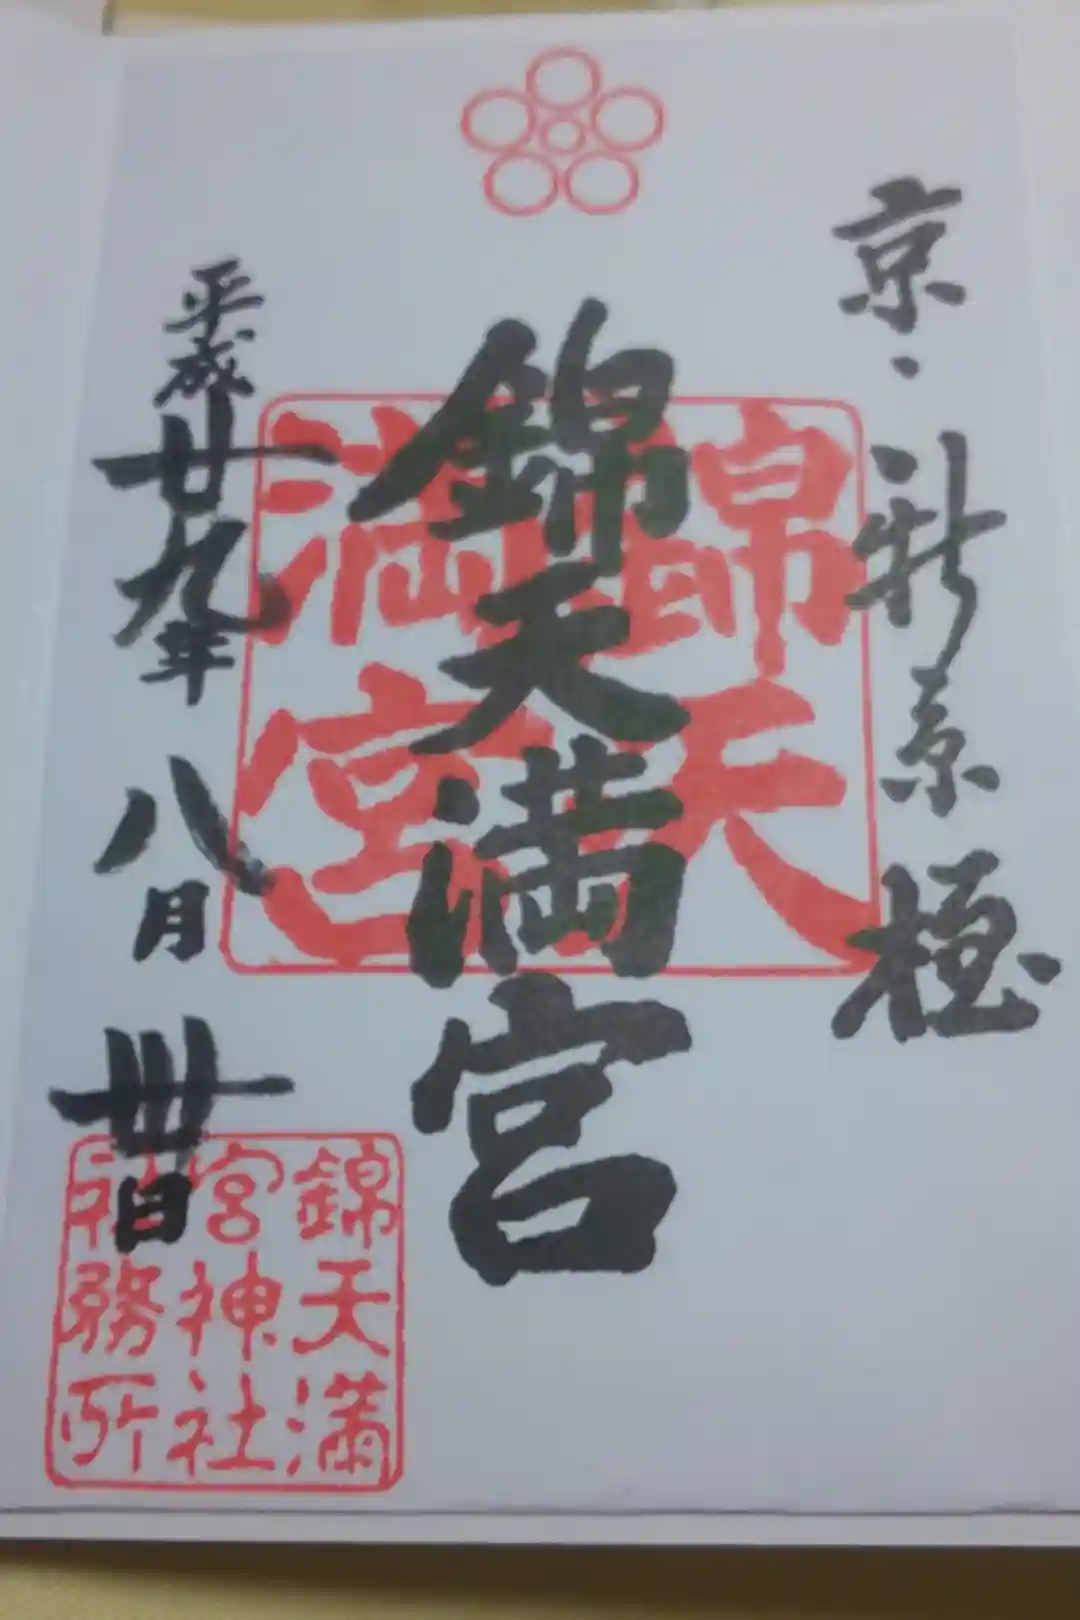 京・新京極
錦天満宮
錦天
満宮
平成廿九年八月卅日
錦天満
宮神社
社務所